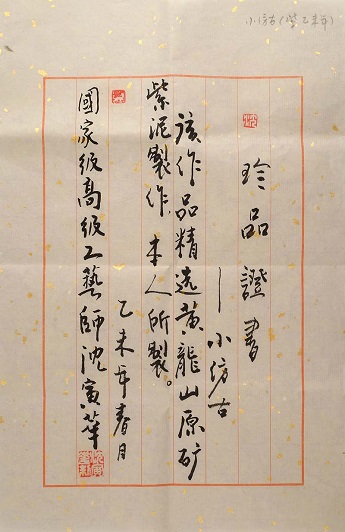 小仿古(紫乙未年)
珍品證書
—小仿古
該作品精选黄龍山原矿
紫泥製作,本人所製。
乙未年春月
國家级高级工藝師沈寅華